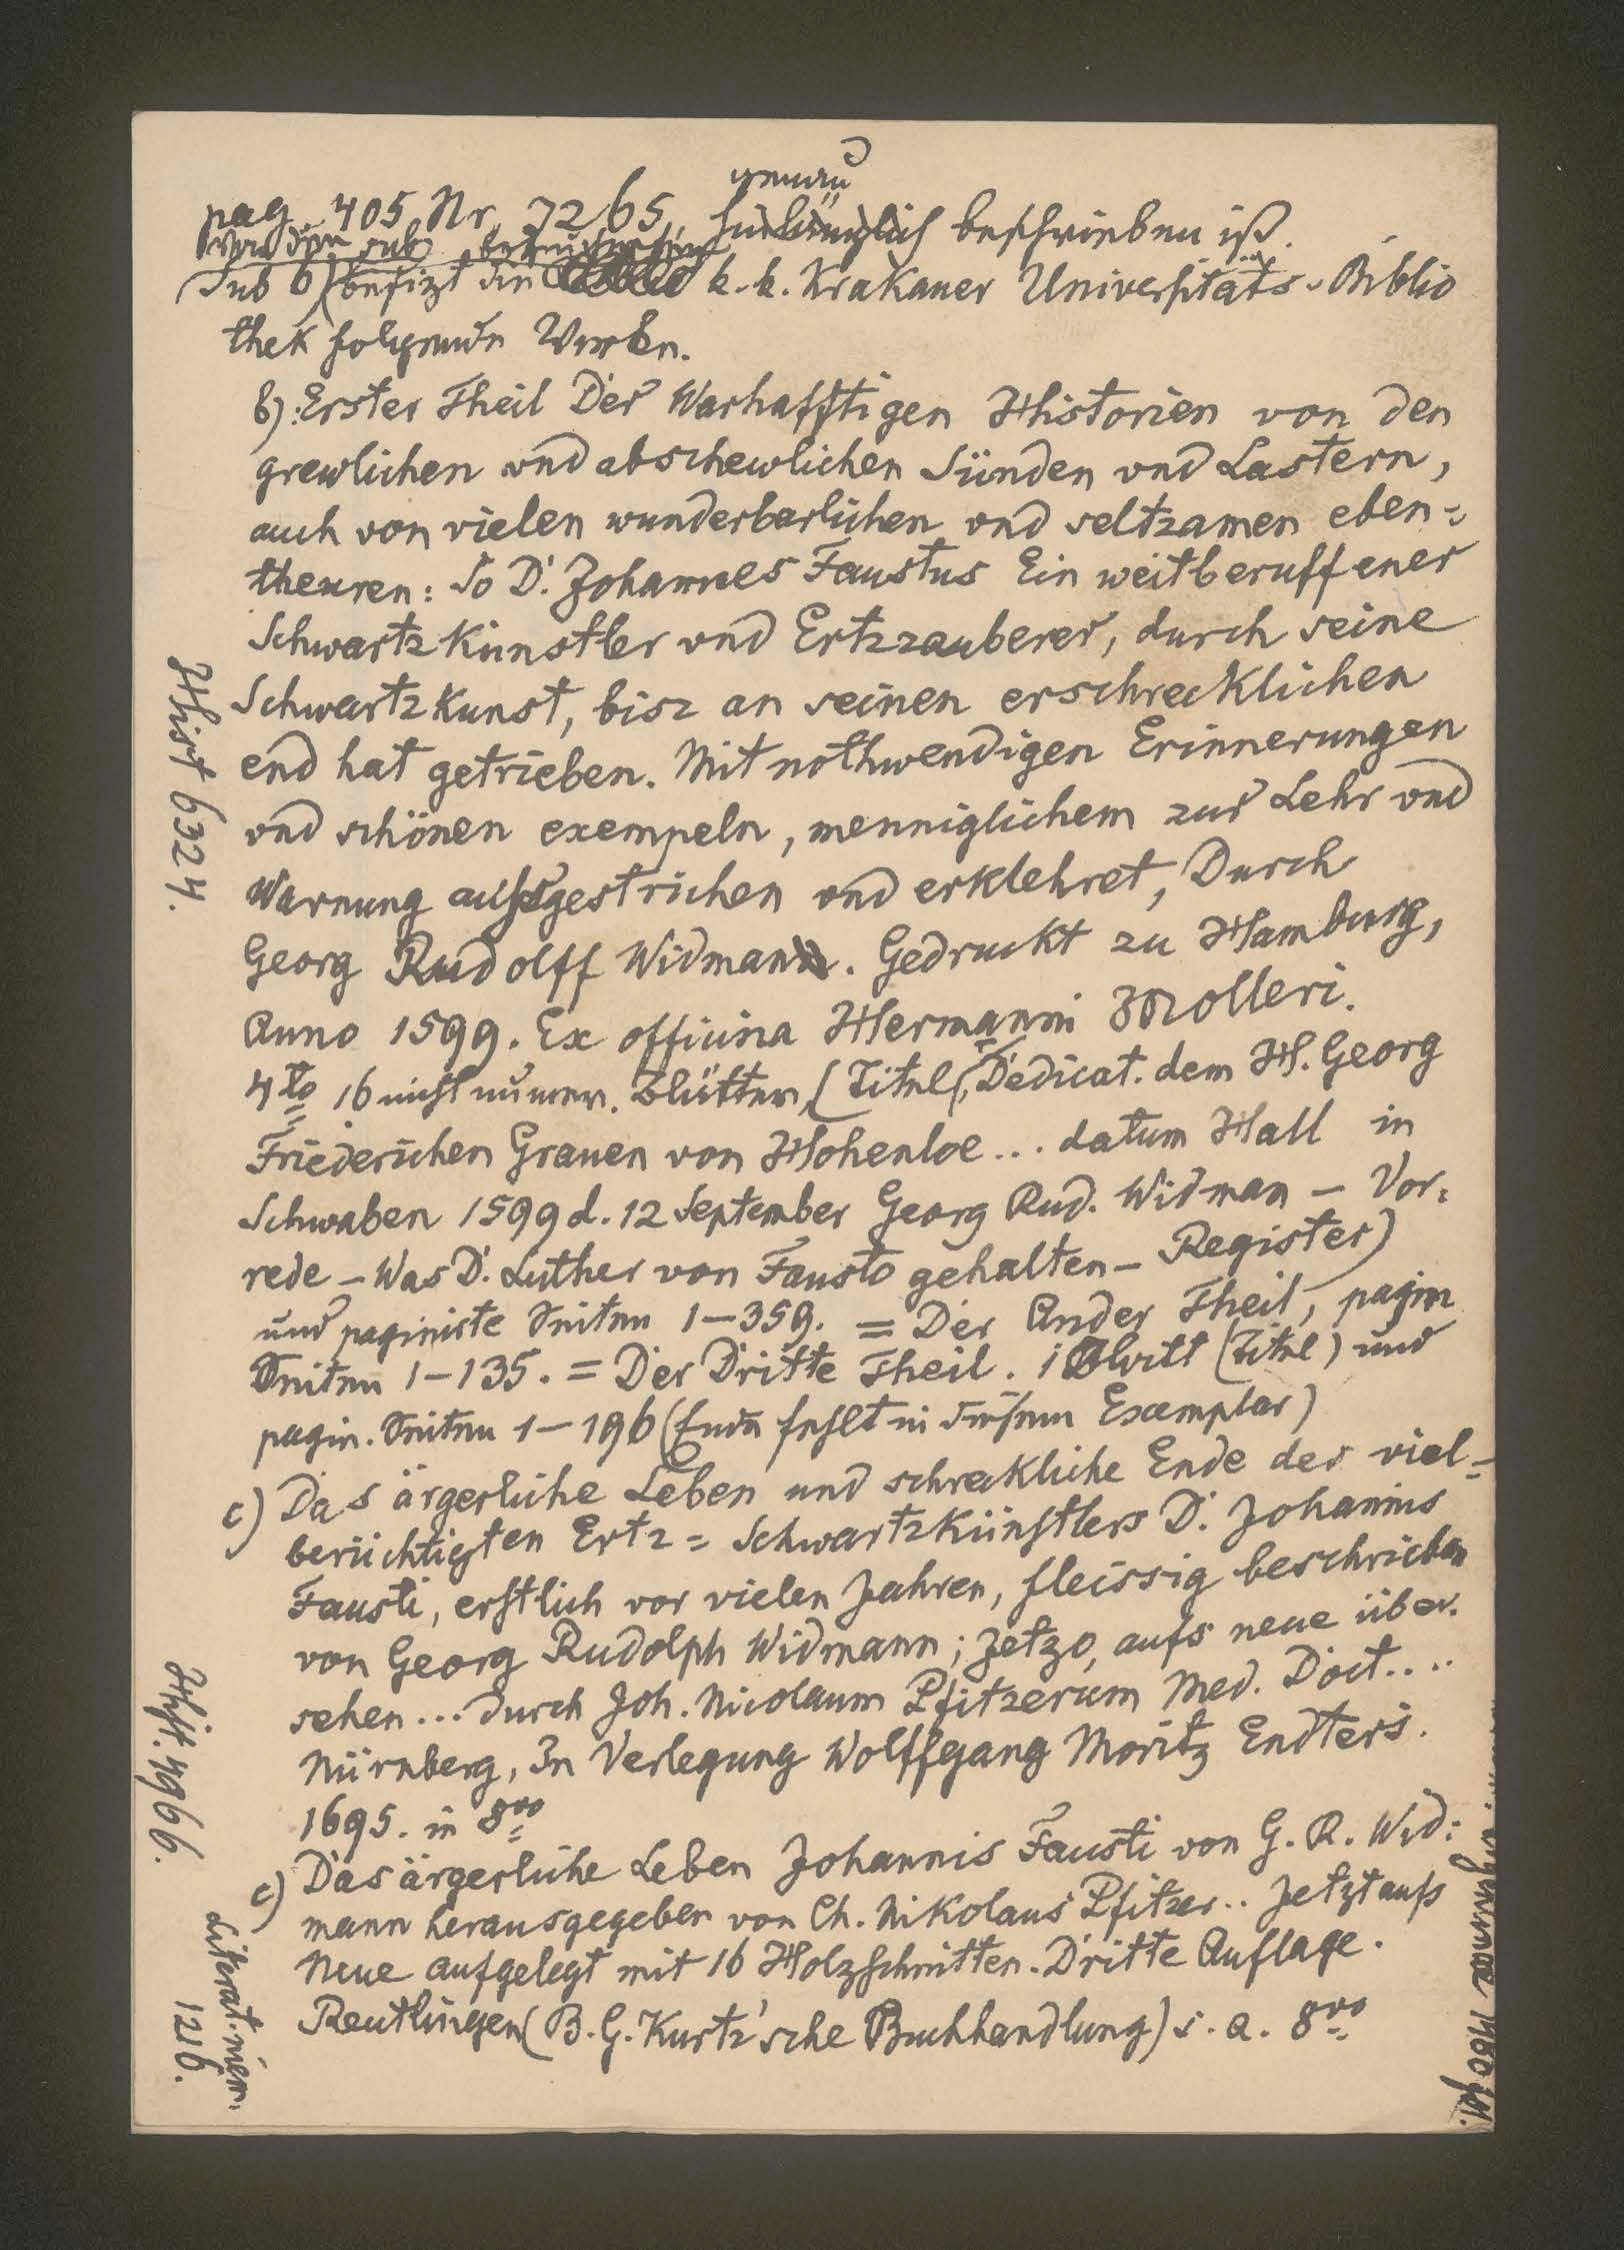 genau
pag. 405 Nr 7265, hinlänglich beschrieben ist.
sub
Sub b) besizt die k. k. Krakauer Universitäts-Biblio
thek folgende Werke.
b): Erster Theil Der Warhafftigen Historien von den
grewlichen vnd abschewlichen Sünden vnd Lastern,
auch von vielen wunderbarlichen vnd seltzamen eben=
theuren: So D. Johannes Faustus Ein weitberuffener
Schwartzkünstler vnd Ertzzauberer, durch seine
Schwartzkunst, bisz an seinen erschrecklichen
end hat getrieben. Mit nothwendigen Erinnerungen
vnd schönen exempeln, menniglichem zur Lehr vnd
Warnung außgestrichen vnd erklehret, Durch
Georg Rudolff Widman. Gedruckt zu Hamburg,
Anno 1599. Ex officina Hermanni Molleri.
4to 16 nicht numer. Blätter, (Titel, Dedicat. dem H. Georg
Friederichen Grauen von Hohenloe... datum Hall in
Schwaben 1599 d. 12 September Georg Rud. Widman – Vor=
rede – Was D. Luther von Fausto gehalten – Register)
und paginirte Seiten 1–359. = Der Ander Theil, pagin
Seiten 1–135. = Der Dritte Theil. 1 Blatt (Titel) und
pagin. Seiten 1–196 (Ende fehlt in diesem Exemplar)
c) Das ärgerliche Leben und schreckliche Ende des viel=
berüchtigten Ertz=Schwartzkünstlers D. Johannis
Fausti, erstlich vor vielen Jahren, fleissig beschrieben
von Georg Rudolph Widmann; Jetzo, aufs neue über.
sehen... durch Joh. Nicolaum Pfitzerum Med. Doct....
Nürnberg, In Verlegung Wolffgang Moritz Endters.
1695. in 8vo
c) Das ärgerliche Leben Johannis Fausti von G. R. Wid:
mann herausgegeben von Ch. Nikolaus Pfitzer.. Jetzt aufs
Neue aufgelegt mit 16 Holzschnitten. Dritte Auflage.
Reutlingen (B. G. Kurtz'sche Buchhandlung) s. a. 8vo
Hist 6324.
Hist. 4966.
Literat. niem.
1216.